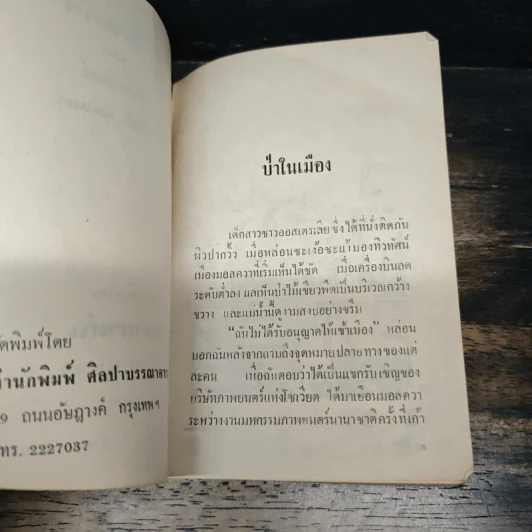 ัดพิมพ์โดย
ำนักพิมพ์ ศิลปาบรรณาคาร
9 ถนนอัษฎางค์ กรุงเทพฯ
ทร. 2227037
ป่าในเมือง
เด็กสาวชาวออสเตรเลียซึ่งได้ที่นั่งติดกัน
ผิวปากวิ้ว เมื่อหล่อนชะเง้อชะแง้มองทิวทัศน์
เมืองมอสควาที่เริ่มเห็นได้ชัด เมื่อเครื่องบินลด
ระดับต่ำลง แลเห็นป่าไม้เขียวพืดเป็นบริเวณกว้าง
ขวาง และแม่น้ำนี้ดูงามสงบอย่างขรึม
"ฉันไม่ได้รับอนุญาตให้เข้าเมือง" หล่อน
บอกฉันหลังจากถามถึงจุดหมายปลายทางของแต่
ละคน เมื่อฉันตอบว่าได้เป็นแขกรับเชิญของ
บริษัทภาพยนตร์แห่งโซเวียต ได้มาเยือนมอสควา
ระหว่างงานมหกรรมภาพยนตร์นานาชาติครั้งที่เก้า